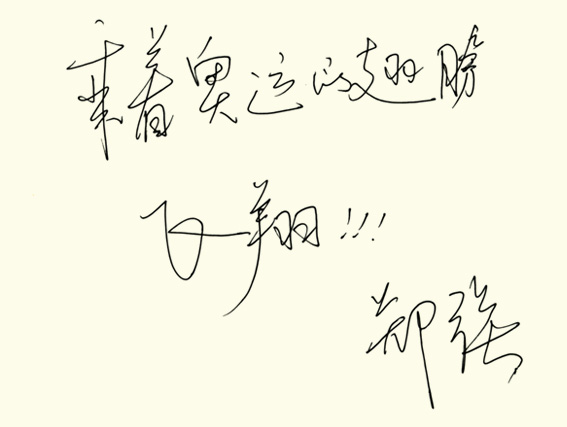 乘着奥运的翅膀
飞翔!!!
郑强